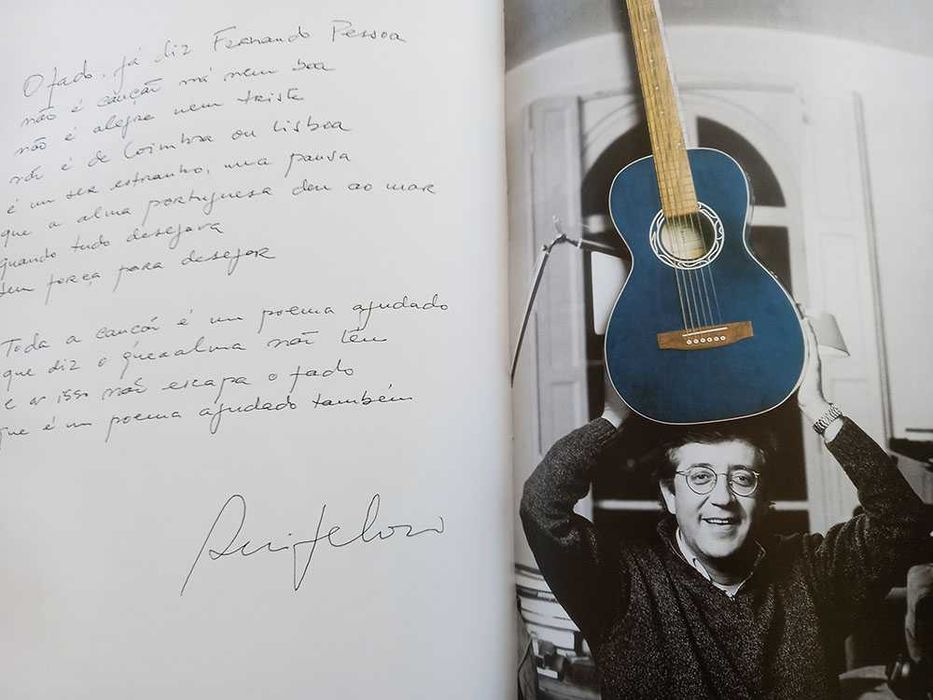 O fado, já diz Fernando Pessoa
não é canção má nem boa
não é alegre nem triste
não é de Coimbra ou Lisboa
é um ser estranho, uma pausa
que a alma portuguesa deu ao mar
quando tudo desejava
sem força para desejar
Toda a canção é um poema ajudado
que diz o que a alma não tem
e a isso não escapa o fado
que é um poema ajudado também
Rui Veloso